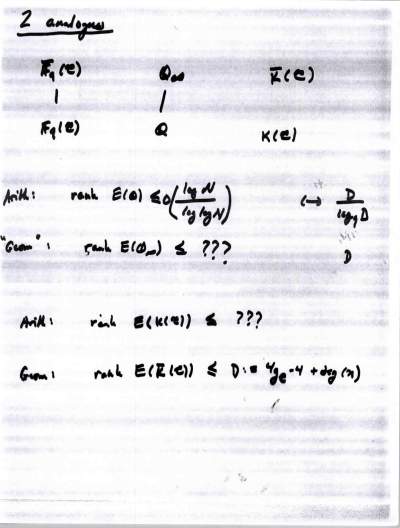 2 analogues
F̄q(C) Q∞ K̄(C)
| |
Fq(C) Q K(C)
Arith: rank E(Q) ≤ O(log N / log log N) ↔ D / log_q D
"Geom": rank E(Q∞) ≤ ??? D
Arith: rank E(K(C)) ≤ ???
Geom: rank E(K̄(C)) ≤ D := 4g_C -4 + deg(n)